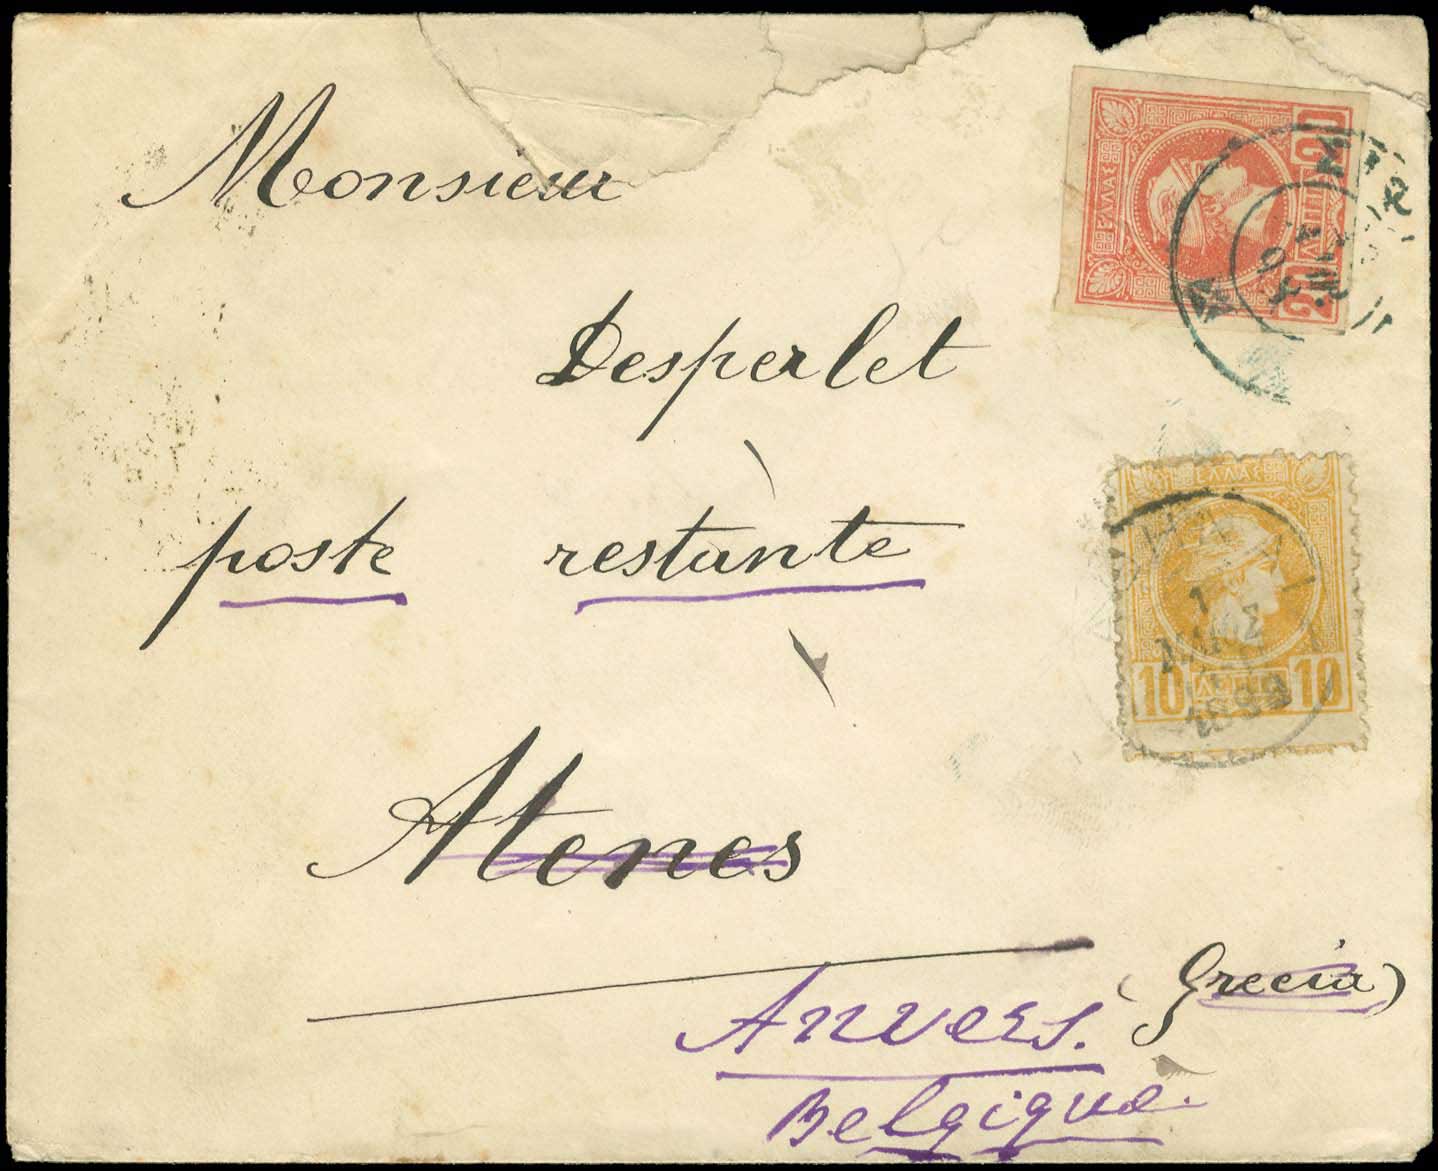 Monsieur
Desperlet
poste restante
Atenes
(Grecia)
Anvers.
Belgique.
ΕΛΛΑΣ
20 ΛΕΠΤΑ 20
ΕΛΛΑΣ
10 ΛΕΠΤΑ 10
1
ΜΑΡΣ